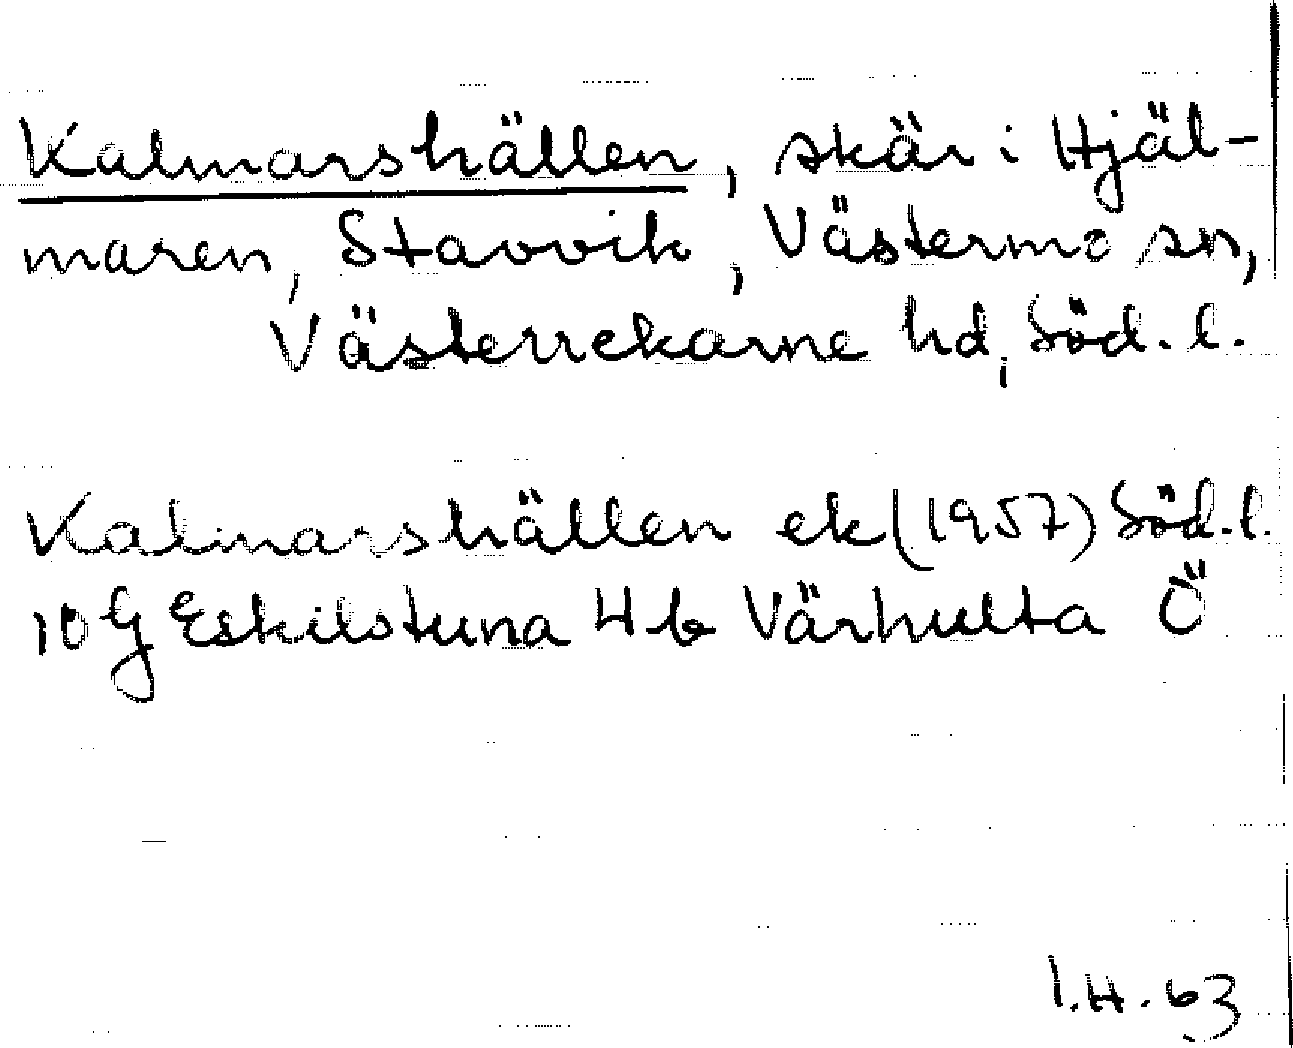 Kalmarshällen, skär i Hjäl-
maren, Stavvik, Västermo sn,
Västerrekarne hd, Söd. l.
Kalmarshällen ek (1957) Söd. l.
10 G Eskilstuna 4 b Värhulta Ö
I.H. 63